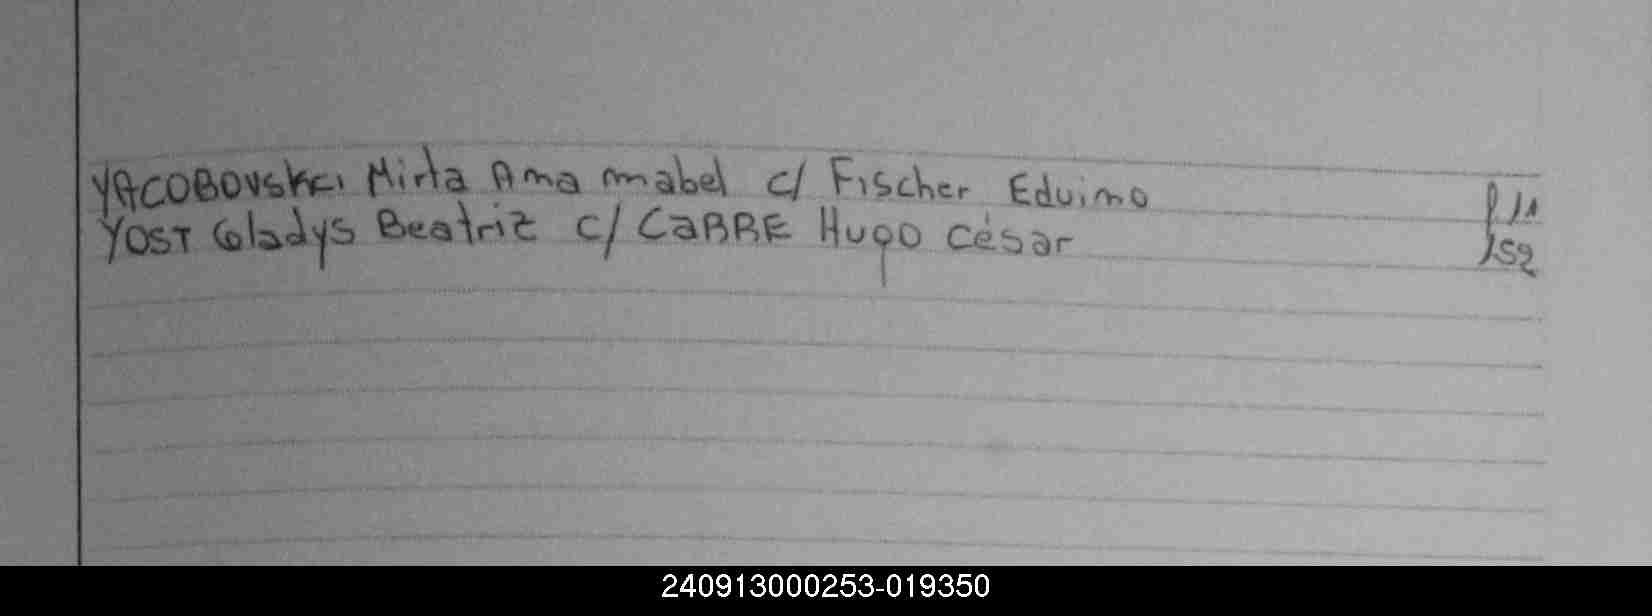 YACOBOVSKCI Mirta Ana mabel c/ Fischer Eduino
YOST Gladys Beatriz c/ CaBRE Hugo César 152
240913000253-019350